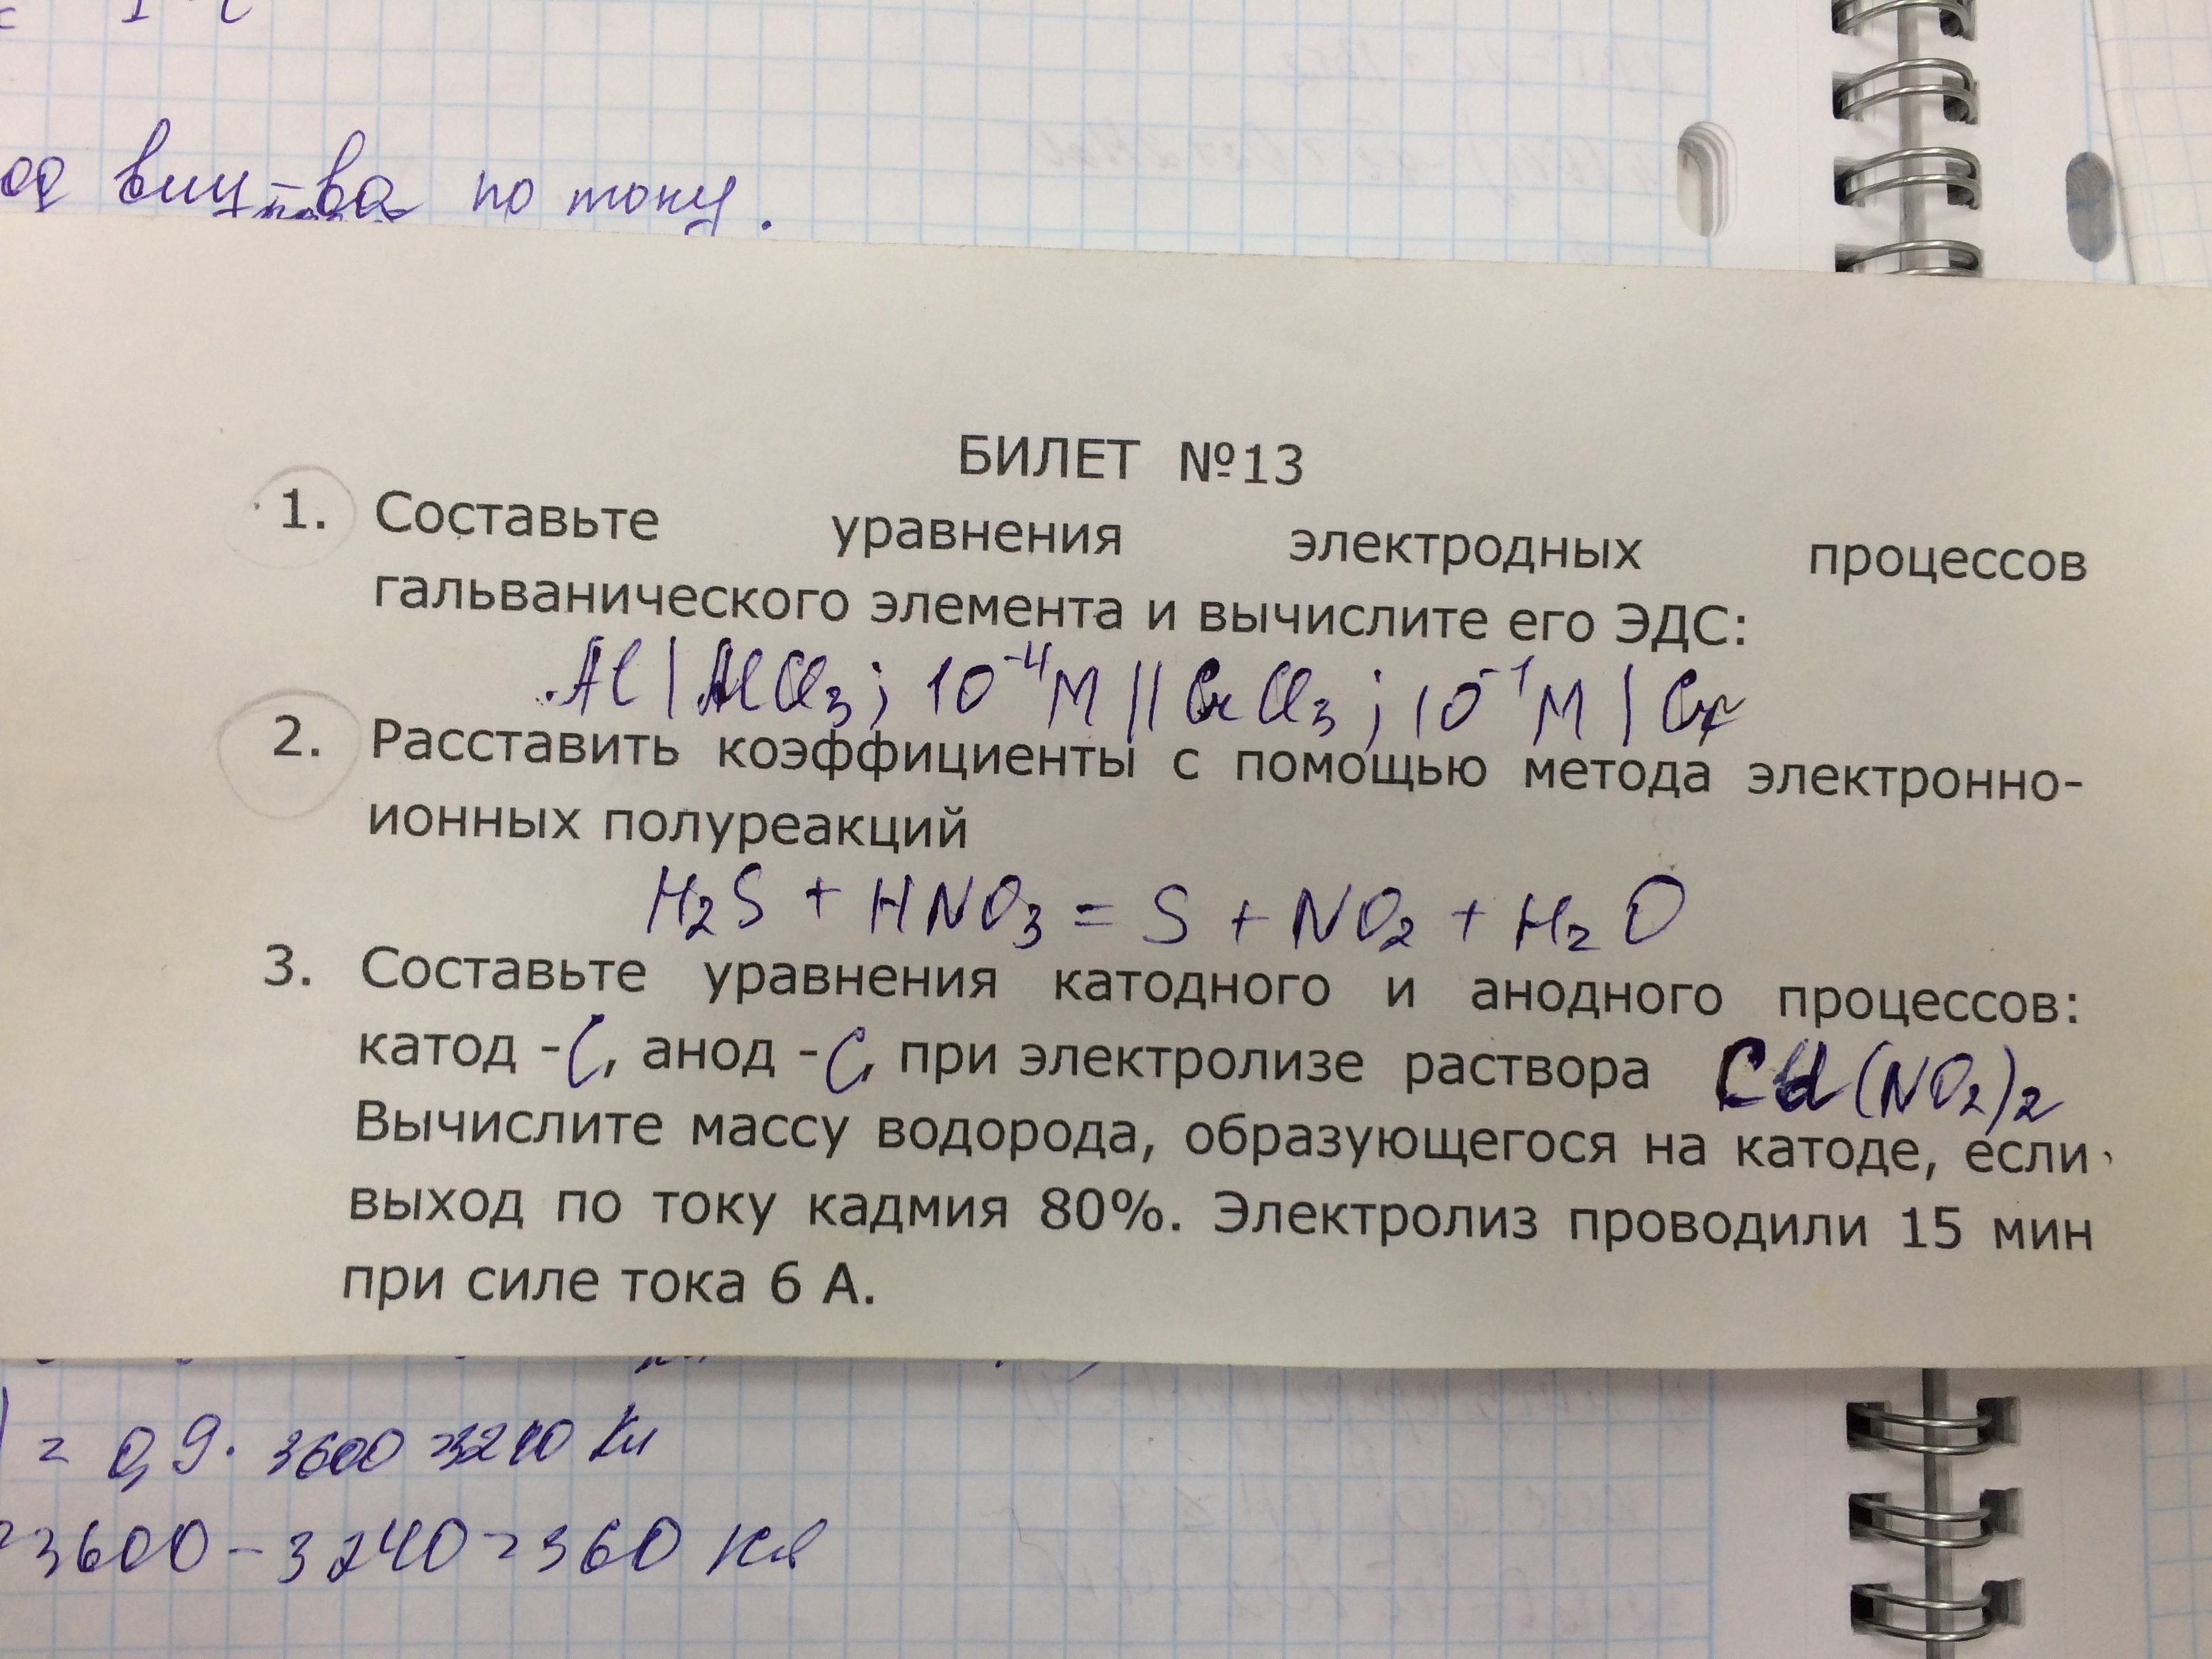 вещ-ва по току.
БИЛЕТ №13
1. Составьте уравнения электродных процессов
гальванического элемента и вычислите его ЭДС:
Al | AlCl₃; 10⁻⁴M || CrCl₃; 10⁻¹M | Cr
2. Расставить коэффициенты с помощью метода электронно-
ионных полуреакций
H₂S + HNO₃ = S + NO₂ + H₂O
3. Составьте уравнения катодного и анодного процессов:
катод -C, анод -C, при электролизе раствора Cd(NO₂)₂
Вычислите массу водорода, образующегося на катоде, если
выход по току кадмия 80%. Электролиз проводили 15 мин
при силе тока 6 А.
= 0,9 · 3600 = 3240 Кл
3600 - 3240 = 360 Кл